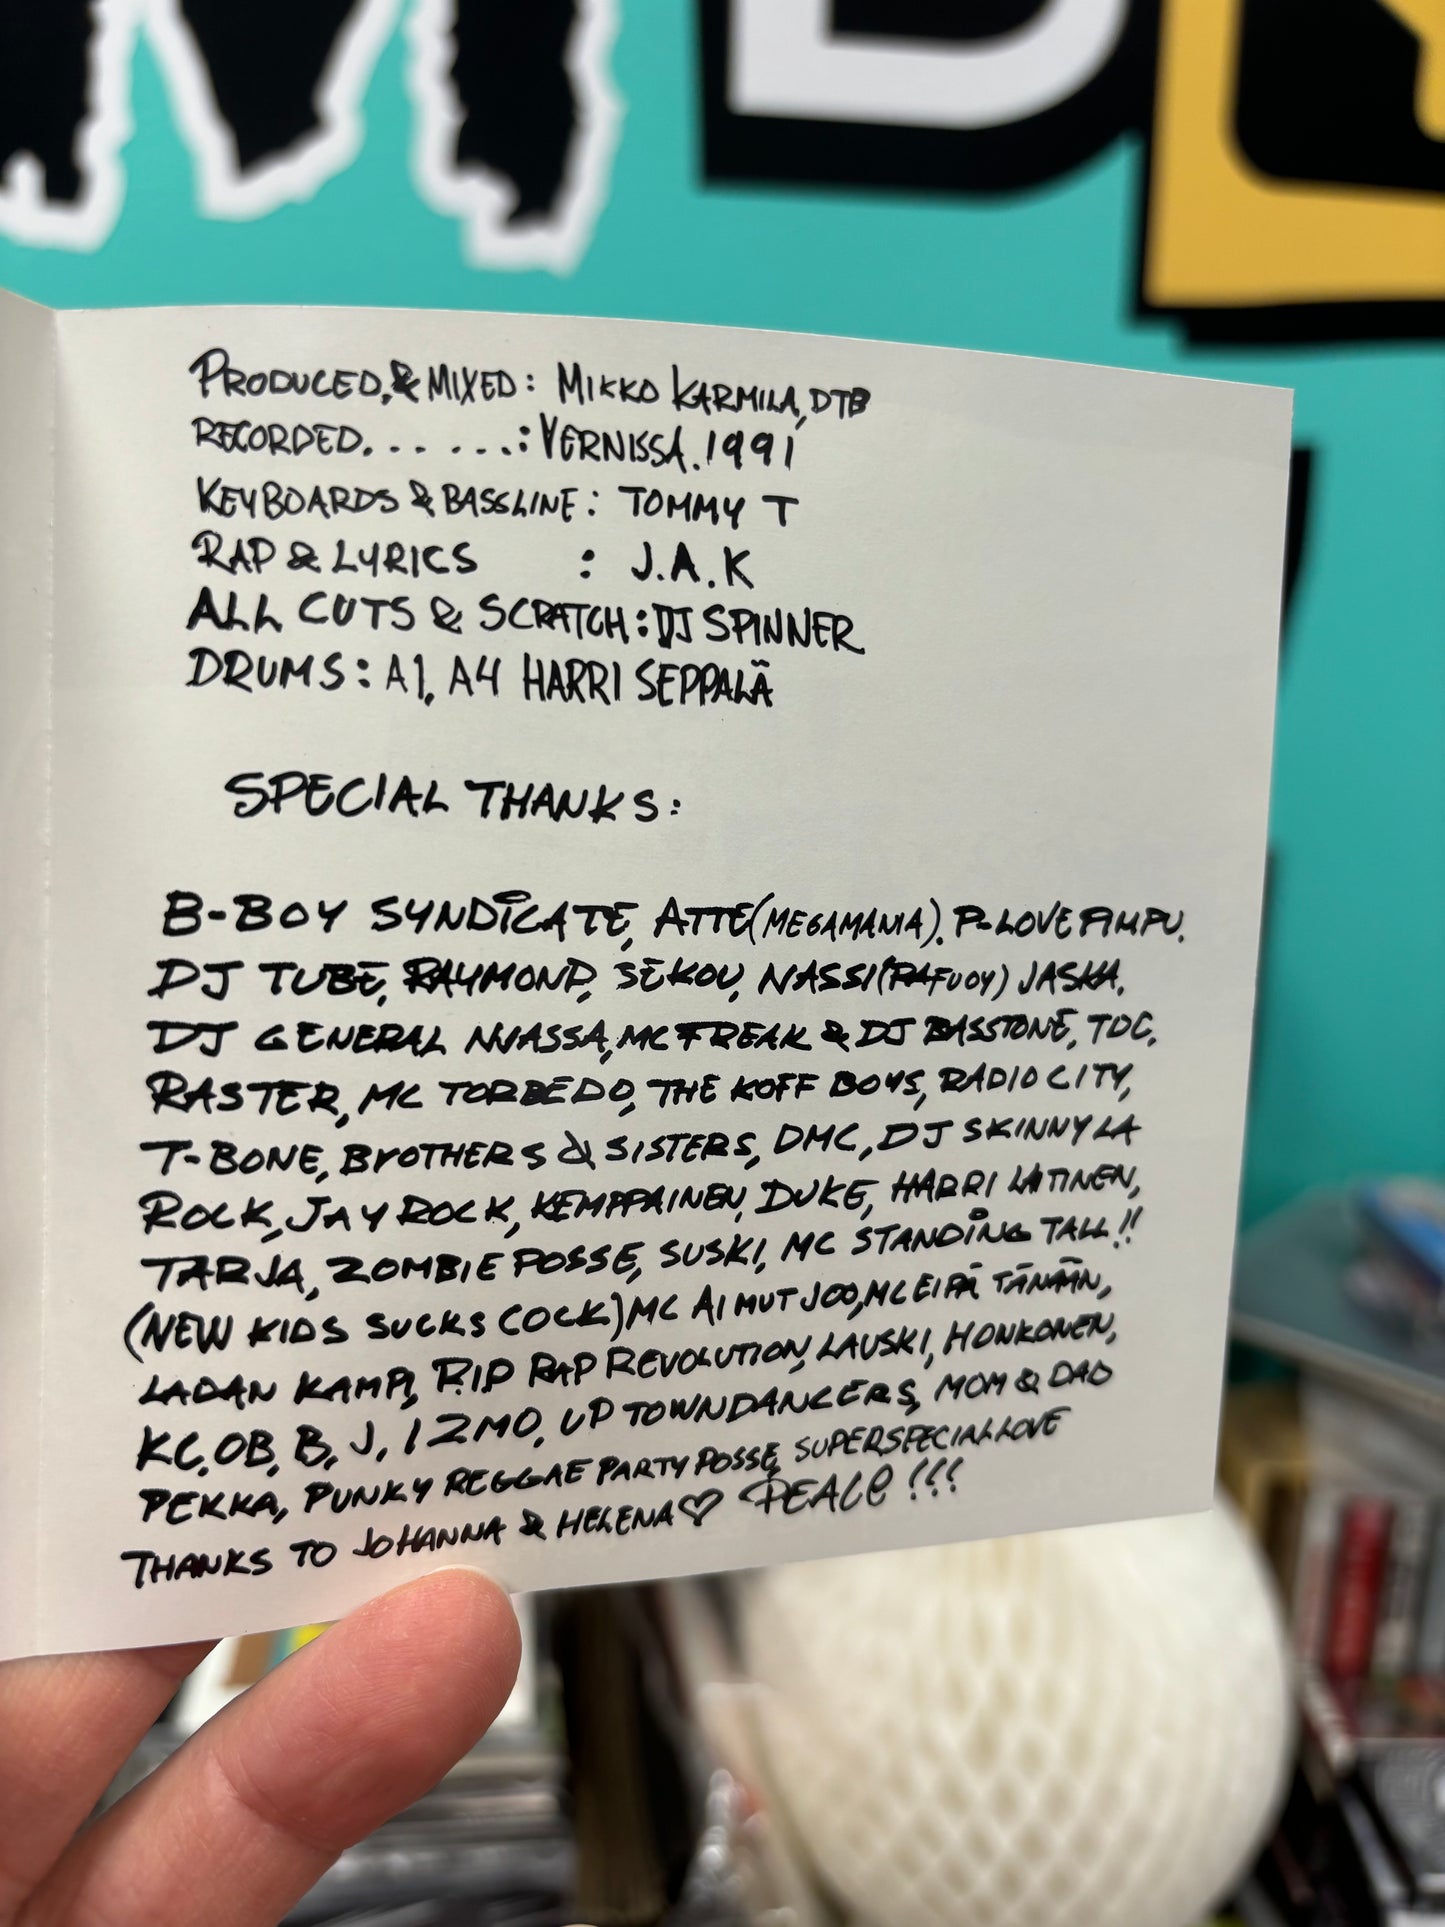 PRODUCED, & MIXED: MIKKO KARMILA, DTB
RECORDED. . . . . . .: VERNISSA. 1991
KEYBOARDS & BASSLINE: TOMMY T
RAP & LYRICS : J.A.K
ALL CUTS & SCRATCH: DJ SPINNER
DRUMS: A1, A4 HARRI SEPPÄLÄ
SPECIAL THANKS:
B-BOY SYNDICATE, ATTE (MEGAMANIA). P-LOVE PIMPU.
DJ TUBE, RAYMOND, SEKOU, NASSI (RAFUOY) JASKA.
DJ GENERAL NJASSA, MC FREAK & DJ BASSTONE, TDC.
RASTER, MC TORBEDO, THE KOFF BOYS, RADIO CITY,
T-BONE, BROTHERS & SISTERS, DMC, DJ SKINNY LA
ROCK, JAY ROCK, KEMPPAINEN, DUKE, HARRI LATINEN,
TARJA, ZOMBIE POSSE, SUSKI, MC STANDING TALL!!
(NEW KIDS SUCKS COCK) MC AI MUT JOO, MC EIPÄ TÄNÄÄN,
LADAN KAMP, R.I.P RAP REVOLUTION, LAUSKI, HONKONEN,
KC, OB, B, J, IZMO, UPTOWNDANCERS, MOM & DAD
PEKKA, PUNKY REGGAE PARTY POSSE, SUPERSPECIAL LOVE
THANKS TO JOHANNA & HELENA ♡ PEACE!!!